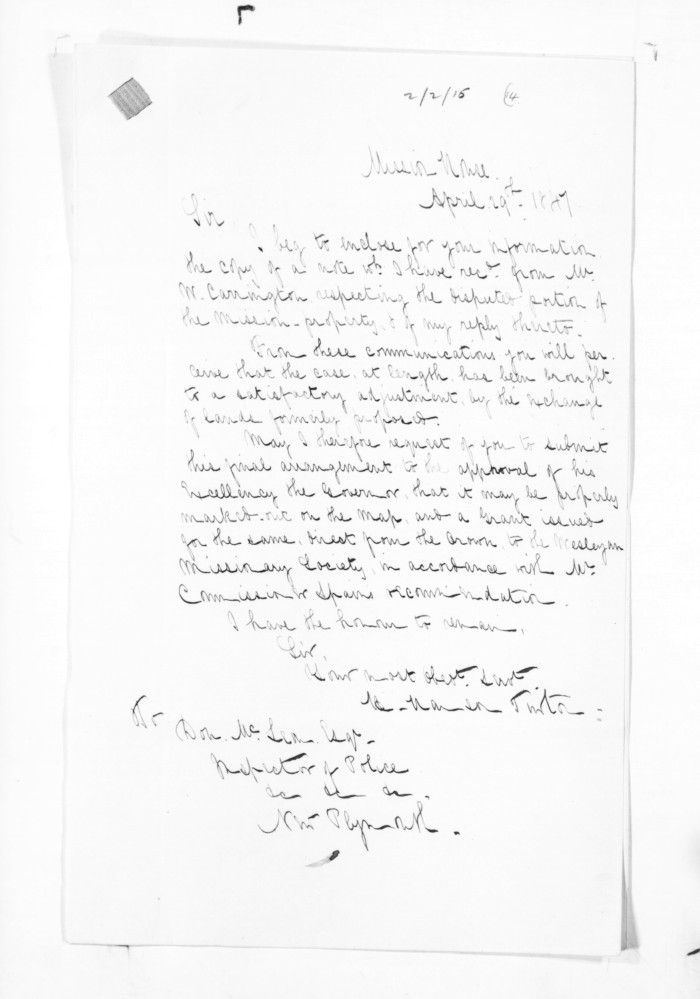 2/2/15 14
Mission House.
April 29th. 1847
Sir
I beg to enclose for your information
the copy of a note wh. I have recd. from Mr.
W. Carrington respecting the disputed portion of
the Mission-property, & of my reply thereto.
From these communications you will per-
ceive that the case, at length, has been brought
to a satisfactory adjustment, by the exchange
of lands formerly proposed.
May I therefore request of you to submit
this final arrangement to the approval of his
Excellency the Governor, that it may be properly
marked-out on the Map, and a Grant issued
for the same, direct from the Crown, to the Wesleyan
Missionary Society, in accordance with Mr.
Commissioner Spain's recommendation.
I have the honour to remain,
Sir,
Your most Obedt. Servt.
H. Hanson Turton
To
Don. Mc. Lean Esqr.
Inspector of Police
&c &c &c.
New Plymouth.